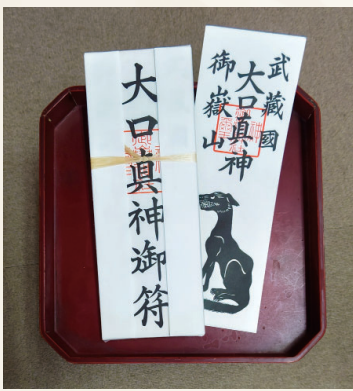 大口眞神御符
武藏國
大口眞神
御嶽山